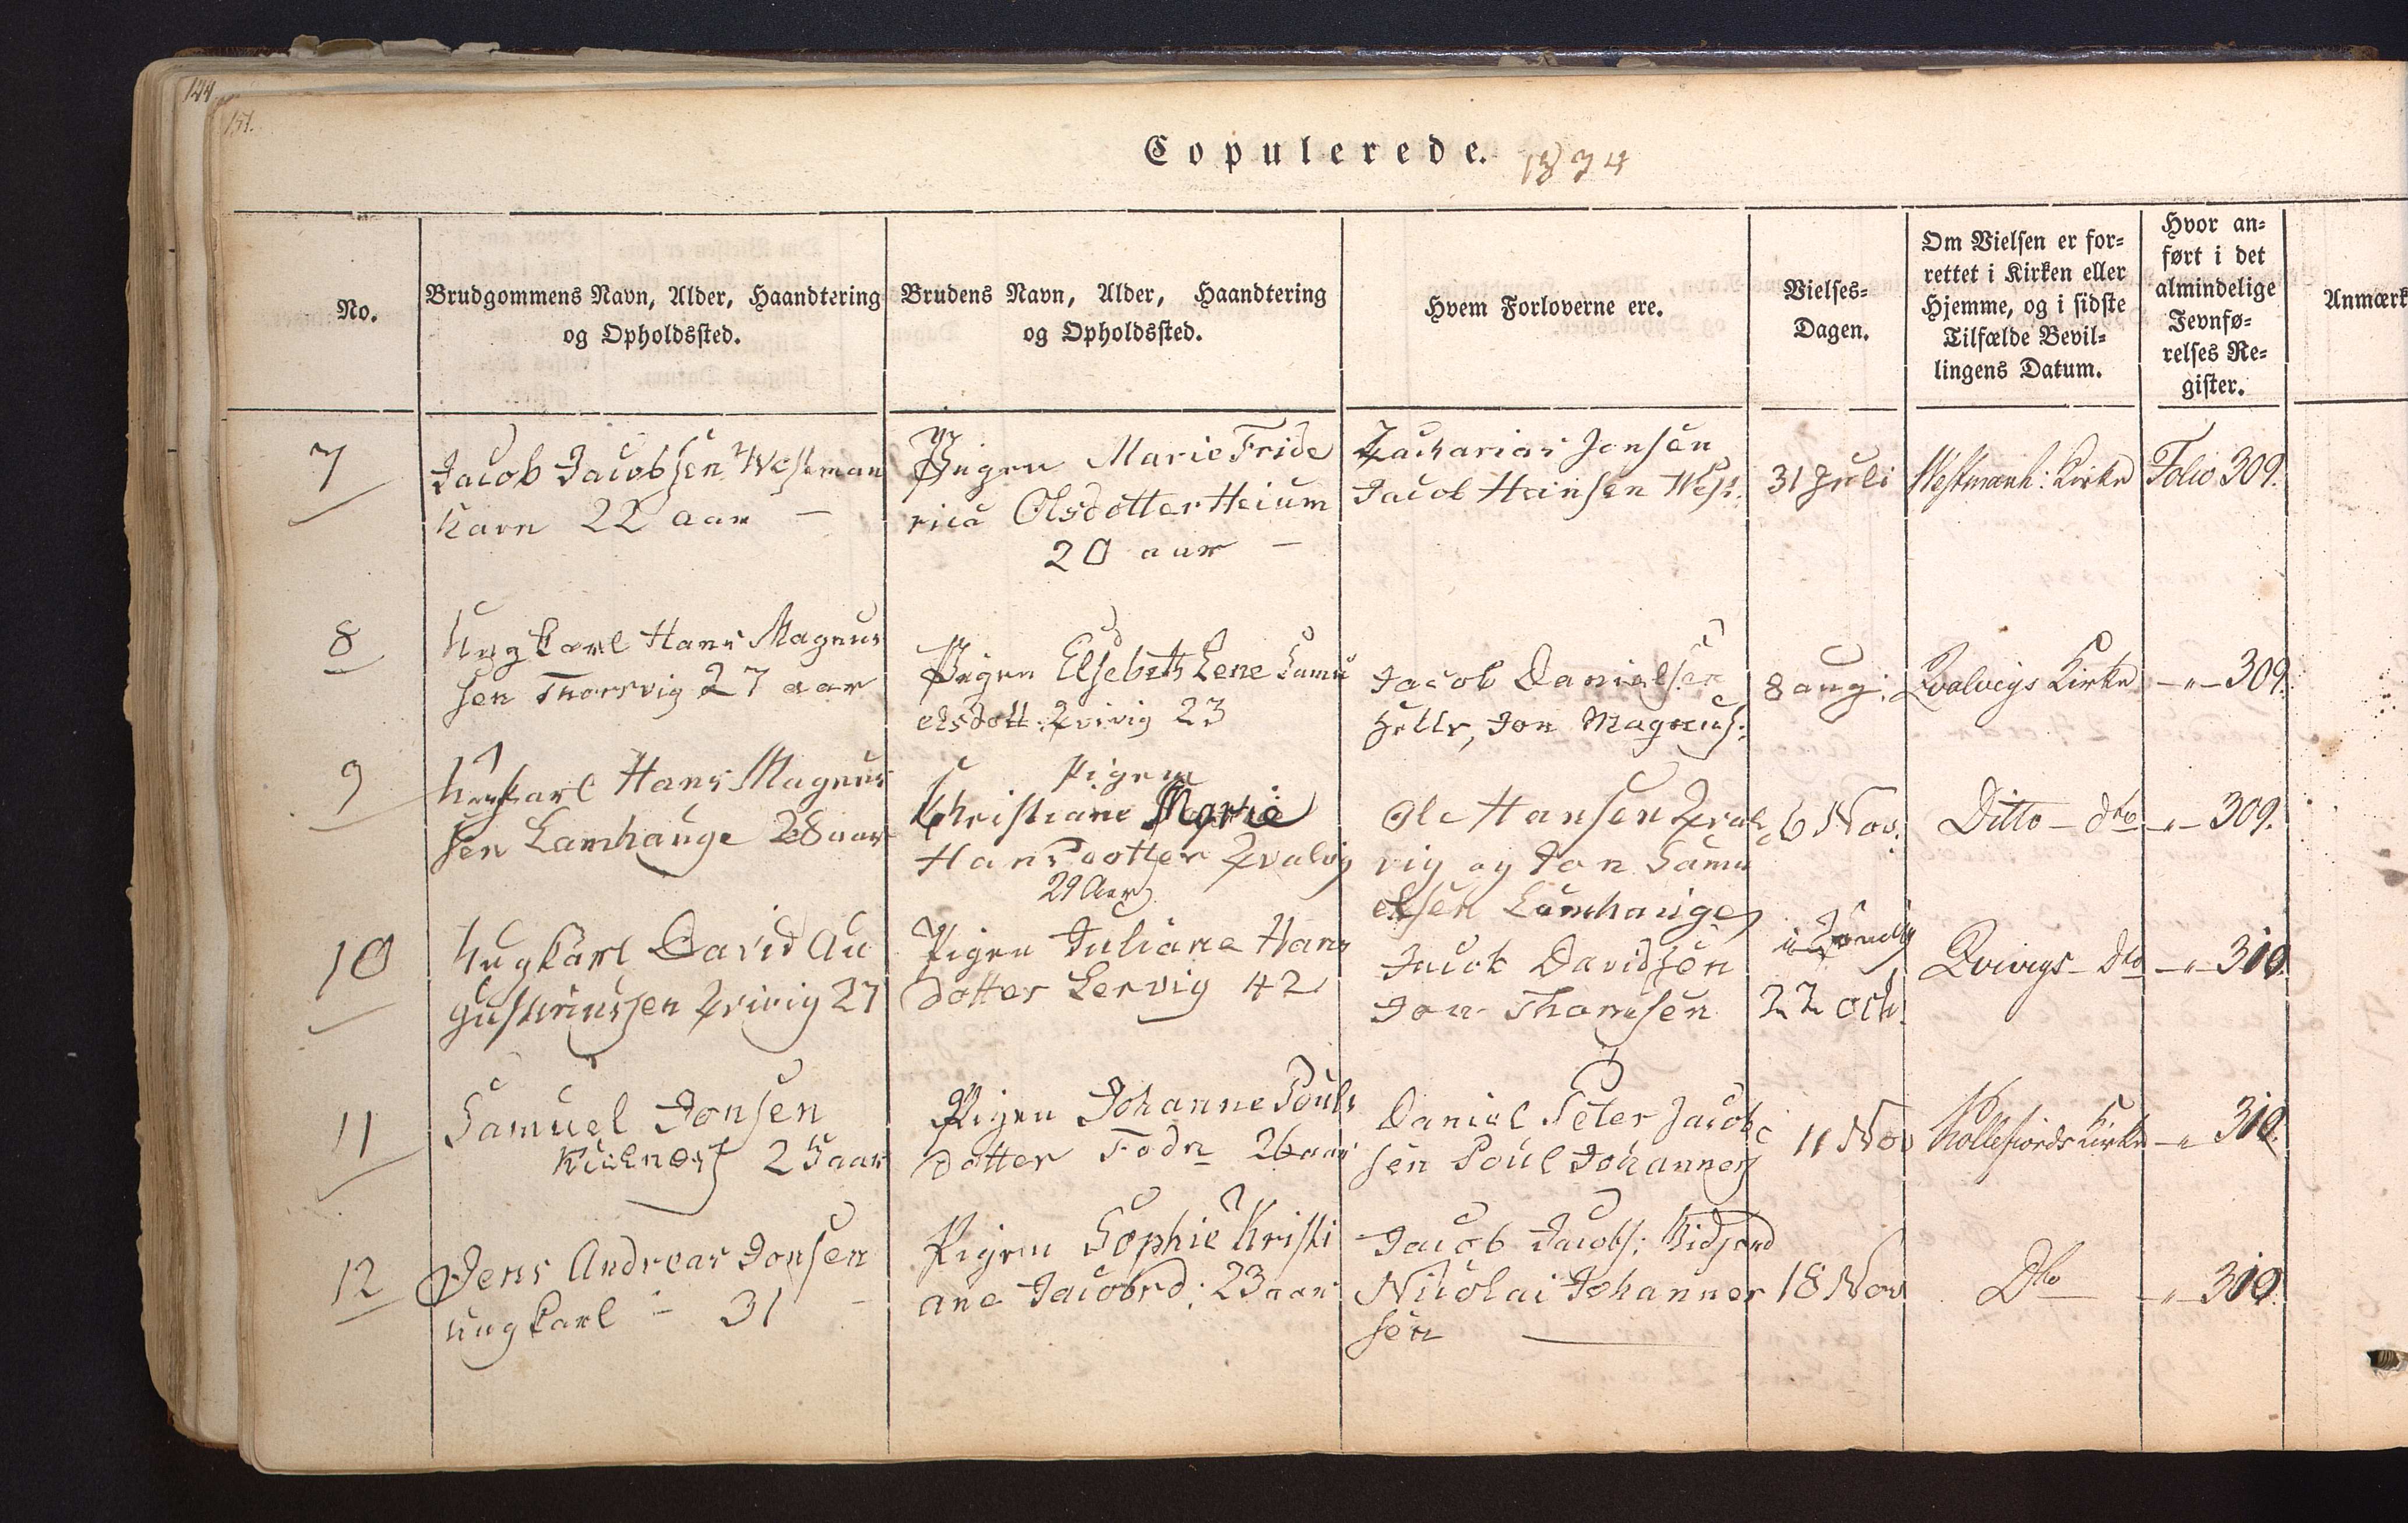 144
151.
Copulerede. 1834
No.
Brudgommens Navn, Alder, Haandtering
og Opholdssted.
Brudens Navn, Alder, Haandtering
og Opholdssted.
Hvem Forloverne ere.
Vielses-
Dagen.
Om Vielsen er for-
rettet i Kirken eller
Hjemme, og i sidste
Tilfælde Bevil-
lingens Datum.
Hvor an-
ført i det
almindelige
Jevnfø-
relses Re-
gister.
Anmærk
7
Jacob Jacobsen Westman
havn 22 aar –
Pigen Marie Fride
rica Olsdotter Heium
20 aar –
Zacharias Jensen
Jacob Heinsen West:
31 Juli
Westmanh: Kirke
Folio 309.
8
Ungkarl Hans Magnus
sen Thorsvig 27 aar
Pigen Elsebeth Lene Samu
elsdott: Qvivig 23
Jacob Danielsen
Jon Magnus:
8 aug:
Qvalvigs Kirke
–„– 309.
9
Ungkarl Hans Magnus
sen Lamhauge 28 aar
Pigen
Christiane Marie
Hansdotter Qvalvig
29 Aar
Ole Hansen Qval
vig og Jon Samu
elsen Lamhauge
6 Nov.
Ditto – dto
–„– 309.
10
Ungkarl David Au
gustinussen Qvivig 27
Pigen Juliane Hans
dotter Lervig 42
Jacob Davidsen
Jon Thomsen
22 Octb.
Qvivigs – dto
–„– 310.
11
Samuel Jonsen
25 aar
Pigen Johanne Pouls
dotter 26 aar
Daniel Peter Jacob
sen Poul Johannes
11 Nov
Kollefiords Kirke
–„ 310.
12
Jens Andreas Jonsen
ungkarl – 31 –
Pigen Sophie Kristi
ane Jacobsd: 23 aar
Jacob Jacobs:
Nicolai Johannes
sen
18 Nov
Dto
–„– 310.